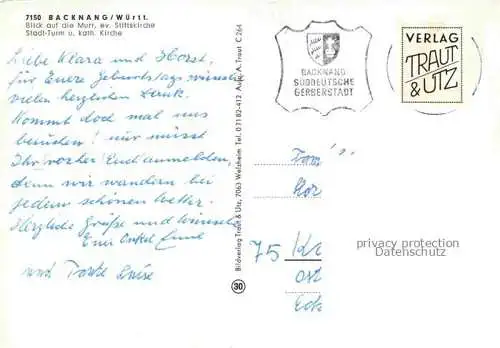 7150 BACKNANG/Württ.
Blick auf die Murr, ev. Stiftskirche
Stadt-Turm u. kath. Kirche
Liebe Klara und Horst,
für Eure Geburtstagswünsche
vielen herzlichen Dank.
Kommt doch mal uns
besuchen! nur müsst
Ihr vorher Euch anmelden,
denn wir wandern bei
jedem schönen Wetter.
Herzliche Grüße und
Euer Onkel
und Tante Luise
Bildverlag Traut & Utz, 7063 Welzheim Tel. 07182-412 Aufn. A. Traut C 264
30
BACKNANG
SÜDDEUTSCHE
GERBERSTADT
VERLAG
TRAUT
& UTZ
Fam
Hor
75 Ka
Ost
Eck
privacy protection
Datenschutz